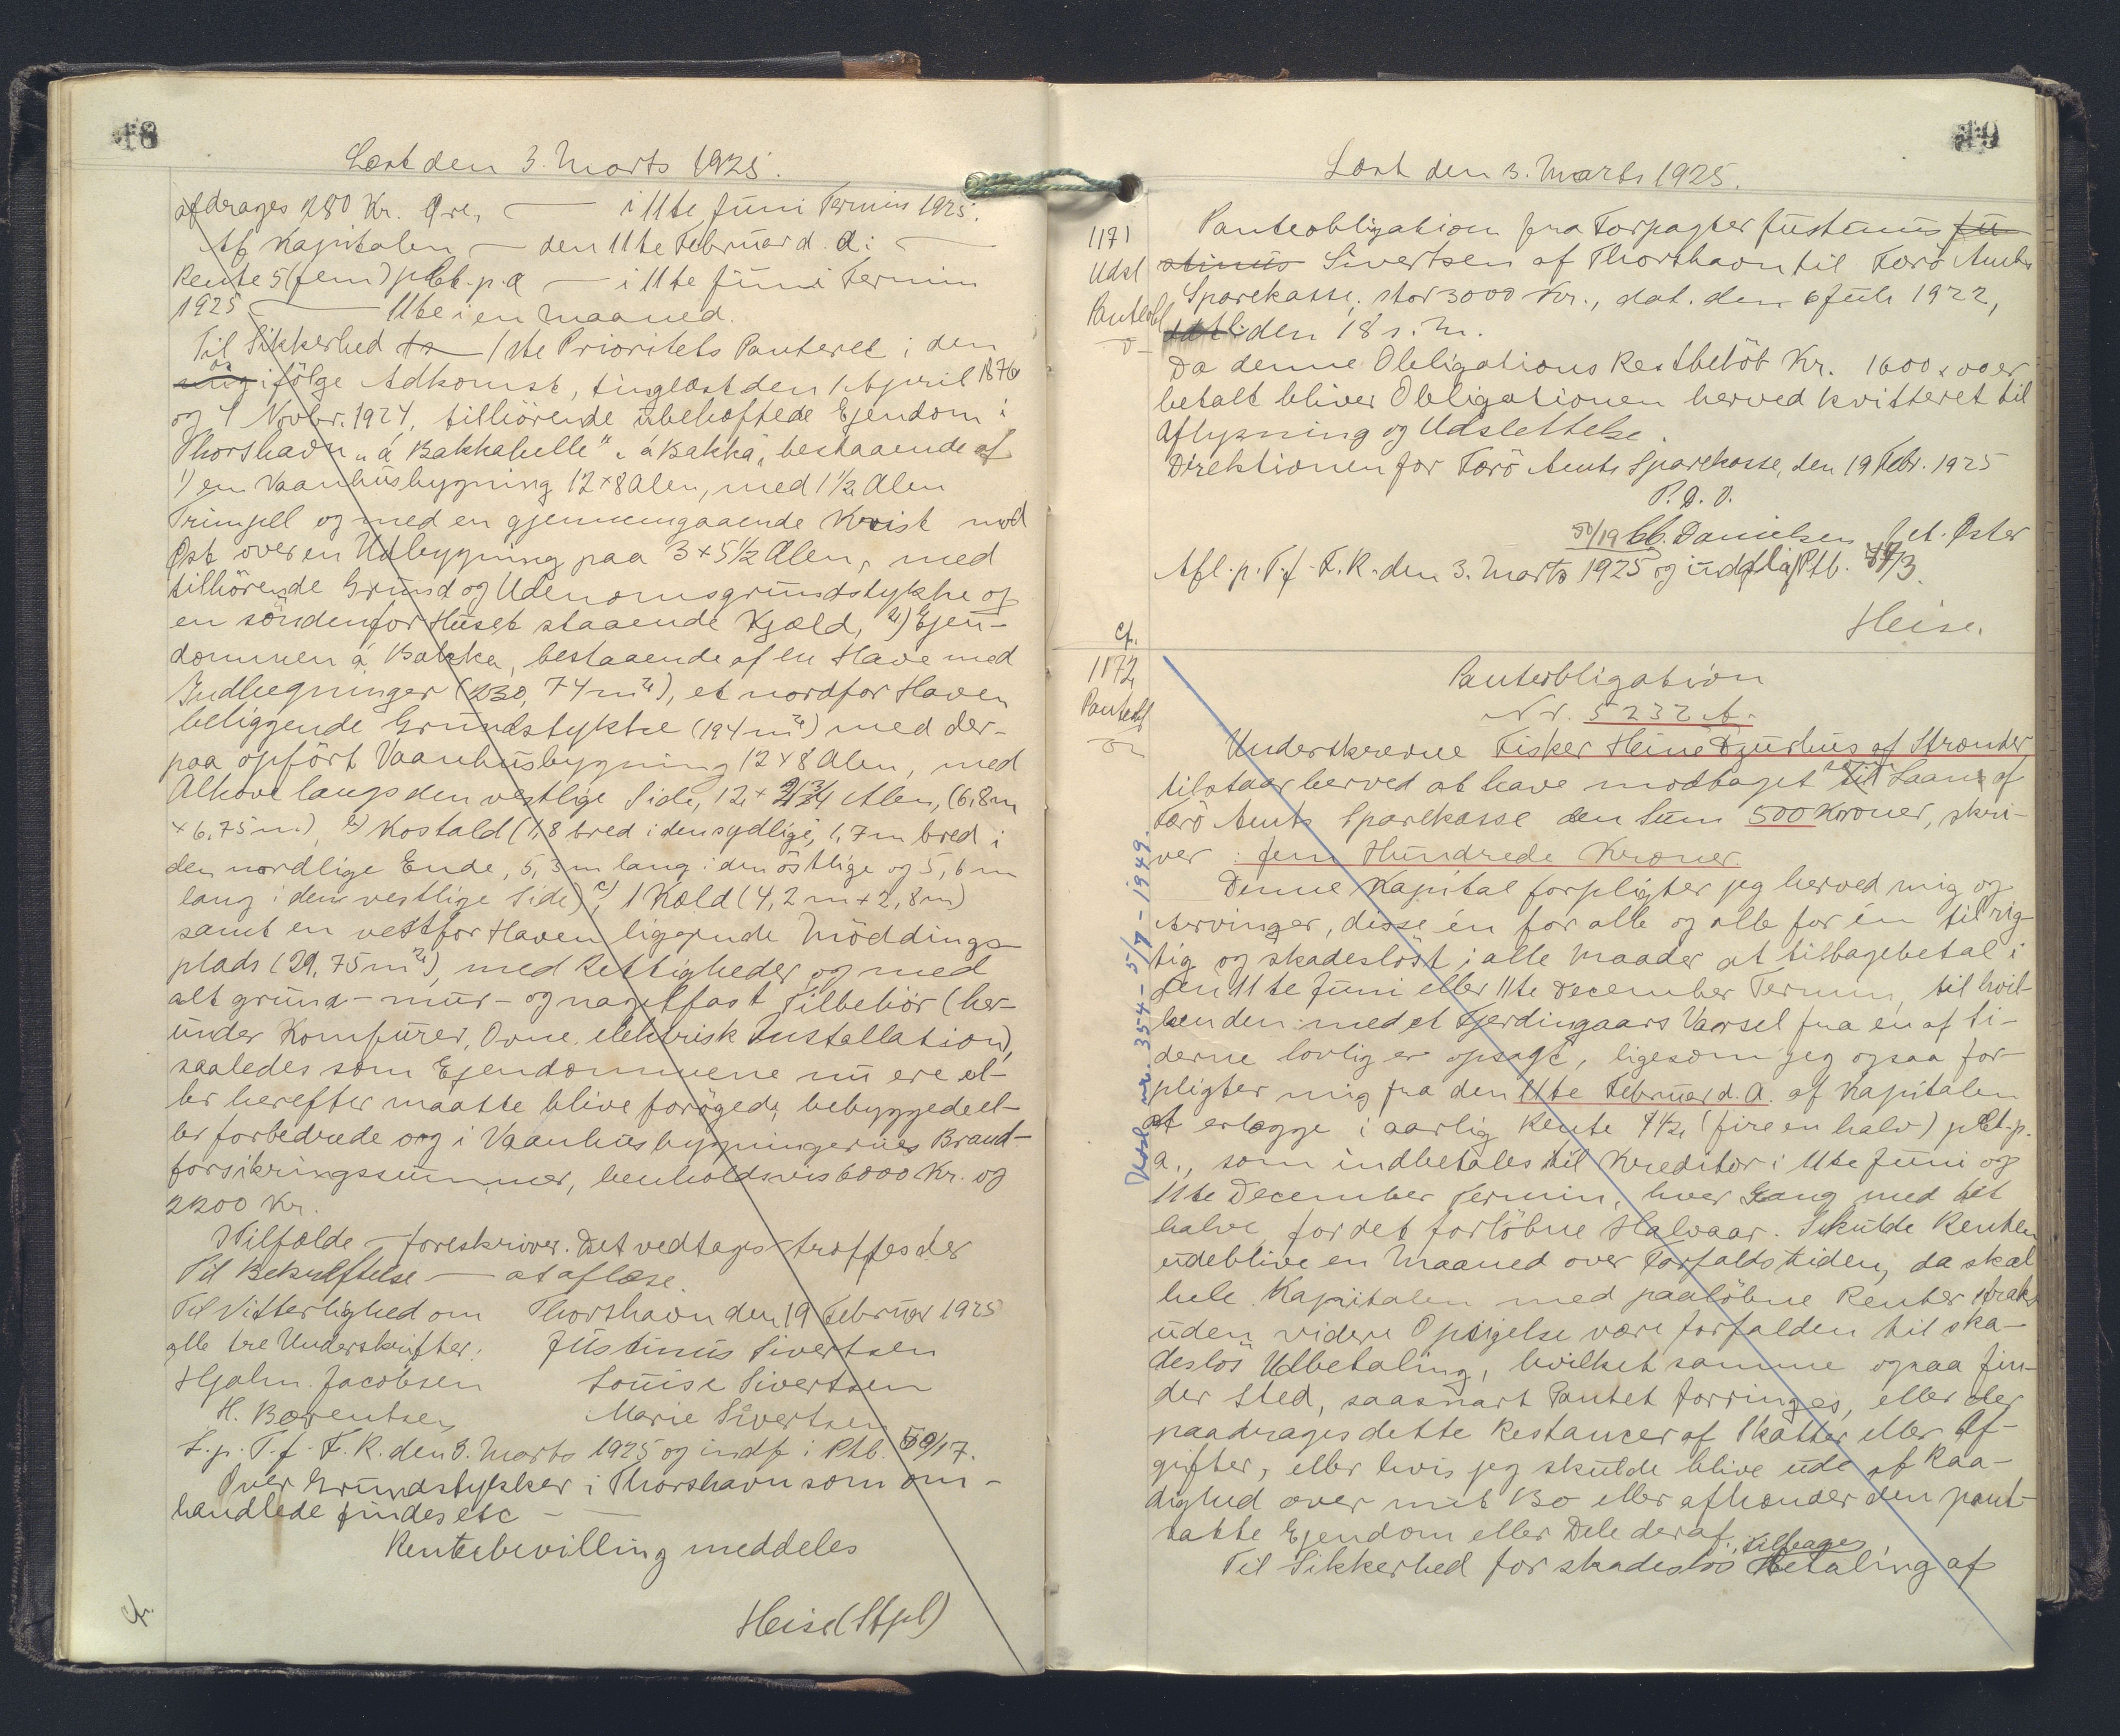 18
Læst den 3. Marts 1925.
afdrages 280 Kr. Øre, — i 11te Juni Termin 1925.
Af Kapitalen — den 11te Februar d. A: —
Rente 5 (fem) pCt. p. a — i 11te Juni Termin
1925 — 11te i en Maaned.
Til Sikkerhed — 1ste Prioritets Panteret i den
os
ifölge Adkomst, tinglæst den 1 April 1876
og 4 Novbr. 1924, tilhörende ubehæftede Ejendom i
Thorshavn „á Bakkahelle" „á Bakka", bestaaende af
1) en Vaanhusbygning 12 x 8 Alen, med 1 1/2 Alen
Trimpel og med en gjennemgaaende Kvist mod
Øst over en Udbygning paa 3 x 5 1/2 Alen, med
tilhörende Grund og Udenomsgrundstykke og
en söndenfor Huset staaende Kjæld, 2) Ejen-
dommen á Bakka, bestaaende af en Have med
Indhegninger (230,74 m2), et nordfor Haven
beliggende Grundstykke (194 m2) med der-
paa opfört Vaanhusbygning 12 x 8 Alen, med
Alkove langs den vestlige Side, 12 x 2 3/4 Alen, (6,8 m
x 6,75 m), b) Kostald (1,8 bred i den sydlige, 1,7 m bred i
den nordlige Ende, 5,3 m lang i den östlige og 5,6 m
lang i den vestlige Side), c) 1 Kæld (4,2 m x 2,8 m)
samt en vestfor Haven liggende Möddings-
plads (29,75 m2), med Rettigheder og med
alt grund- mur- og nagelfast Tilbehör (her-
under Komfurer, Ovne, elektrisk Installation),
saaledes som Ejendommene nu ere el-
ler herefter maatte blive forögede, bebyggede el-
ler forbedrede og i Vaanhusbygningernes Brand-
forsikringssummer, henholdsvis 6000 Kr. og
2200 Kr.
I Tilfælde — foreskriver. Det vedtages — træffes der
Til Bekræftelse — at aflæse.
Til Vitterlighed om Thorshavn den 19 Februar 1925
alle tre Underskrifter: Justinus Sivertsen
Hjalm. Jacobsen Louise Sivertsen
H. Bærentsen Marie Sivertsen
L. p. T. f. F. R. den 3. Marts 1925 og indf. i Ptb. 50/17.
Over Grundstykker i Thorshavn som om-
handlede findes etc —
Rentebevilling meddeles
Heise (Stpl)
cf.
19
Læst den 3. Marts 1925.
1171
Udsl
Panteobl
Panteobligation fra Forpagter Justinus Ju-
stinus Sivertsen af Thorshavn til Færö Amts
Sparekasse, stor 3000 Kr., dat. den 6 Juli 1922,
den 18 s. M.
Da denne Obligations Restbelöb Kr. 1600,00 er
betalt bliver Obligationen herved kvitteret til
Aflysning og Udslettelse.
Direktionen for Færö Amts Sparekasse, den 19 Febr. 1925
P. D. V.
50/19 CC. Danielsen
Afl. p. T. f. F. R. den 3. Marts 1925 og Ptb.
Heise.
cf.
1172
Panteobl
Panteobligation
Nr. 5232 A.
Underskrevne Fisker Heine Dzurhus af Strænder
tilstaar herved at have modtaget til Laans af
Færö Amts Sparekasse den Sum 500 Kroner, skri-
ver: fem Hundrede Kroner.
Denne Kapital forpligter jeg herved mig og
Arvinger, disse én for alle og alle for én til rig-
tig og skadeslöst i alle Maader at tilbagebetale i
den 11te Juni eller 11te December Termin, til hvil-
ken den med et Fjerdingaars Varsel fra én af Si-
derne lovlig er opsagt, ligesom jeg ogsaa for-
pligter mig fra den 11te Februar d. A. af Kapitalen
at erlægge i aarlig Rente 4 1/2 (fire en halv) pCt. p.
a., som indbetales til Kreditor i 11te Juni og
11te December Termin, hver Gang med det
halve for det forlöbne Halvaar. Skulde Renten
udeblive en Maaned over Forfaldstiden, da skal
hele Kapitalen med paalöbne Renter straks
uden videre Opsigelse være forfalden til ska-
deslös Udbetaling, hvilket samme ogsaa fin-
der Sted, saasnart Pantet forringes, eller der
paadrages dette Restancer af Skatter eller Af-
gifter, eller hvis jeg skulde blive ude af Raa-
dighed over mit Bo eller afhænder den pant-
satte Ejendom eller Dele deraf.
tilbage
Til Sikkerhed for skadeslös Betaling af
Udsl. nr. 354 - 5/7 - 1949.